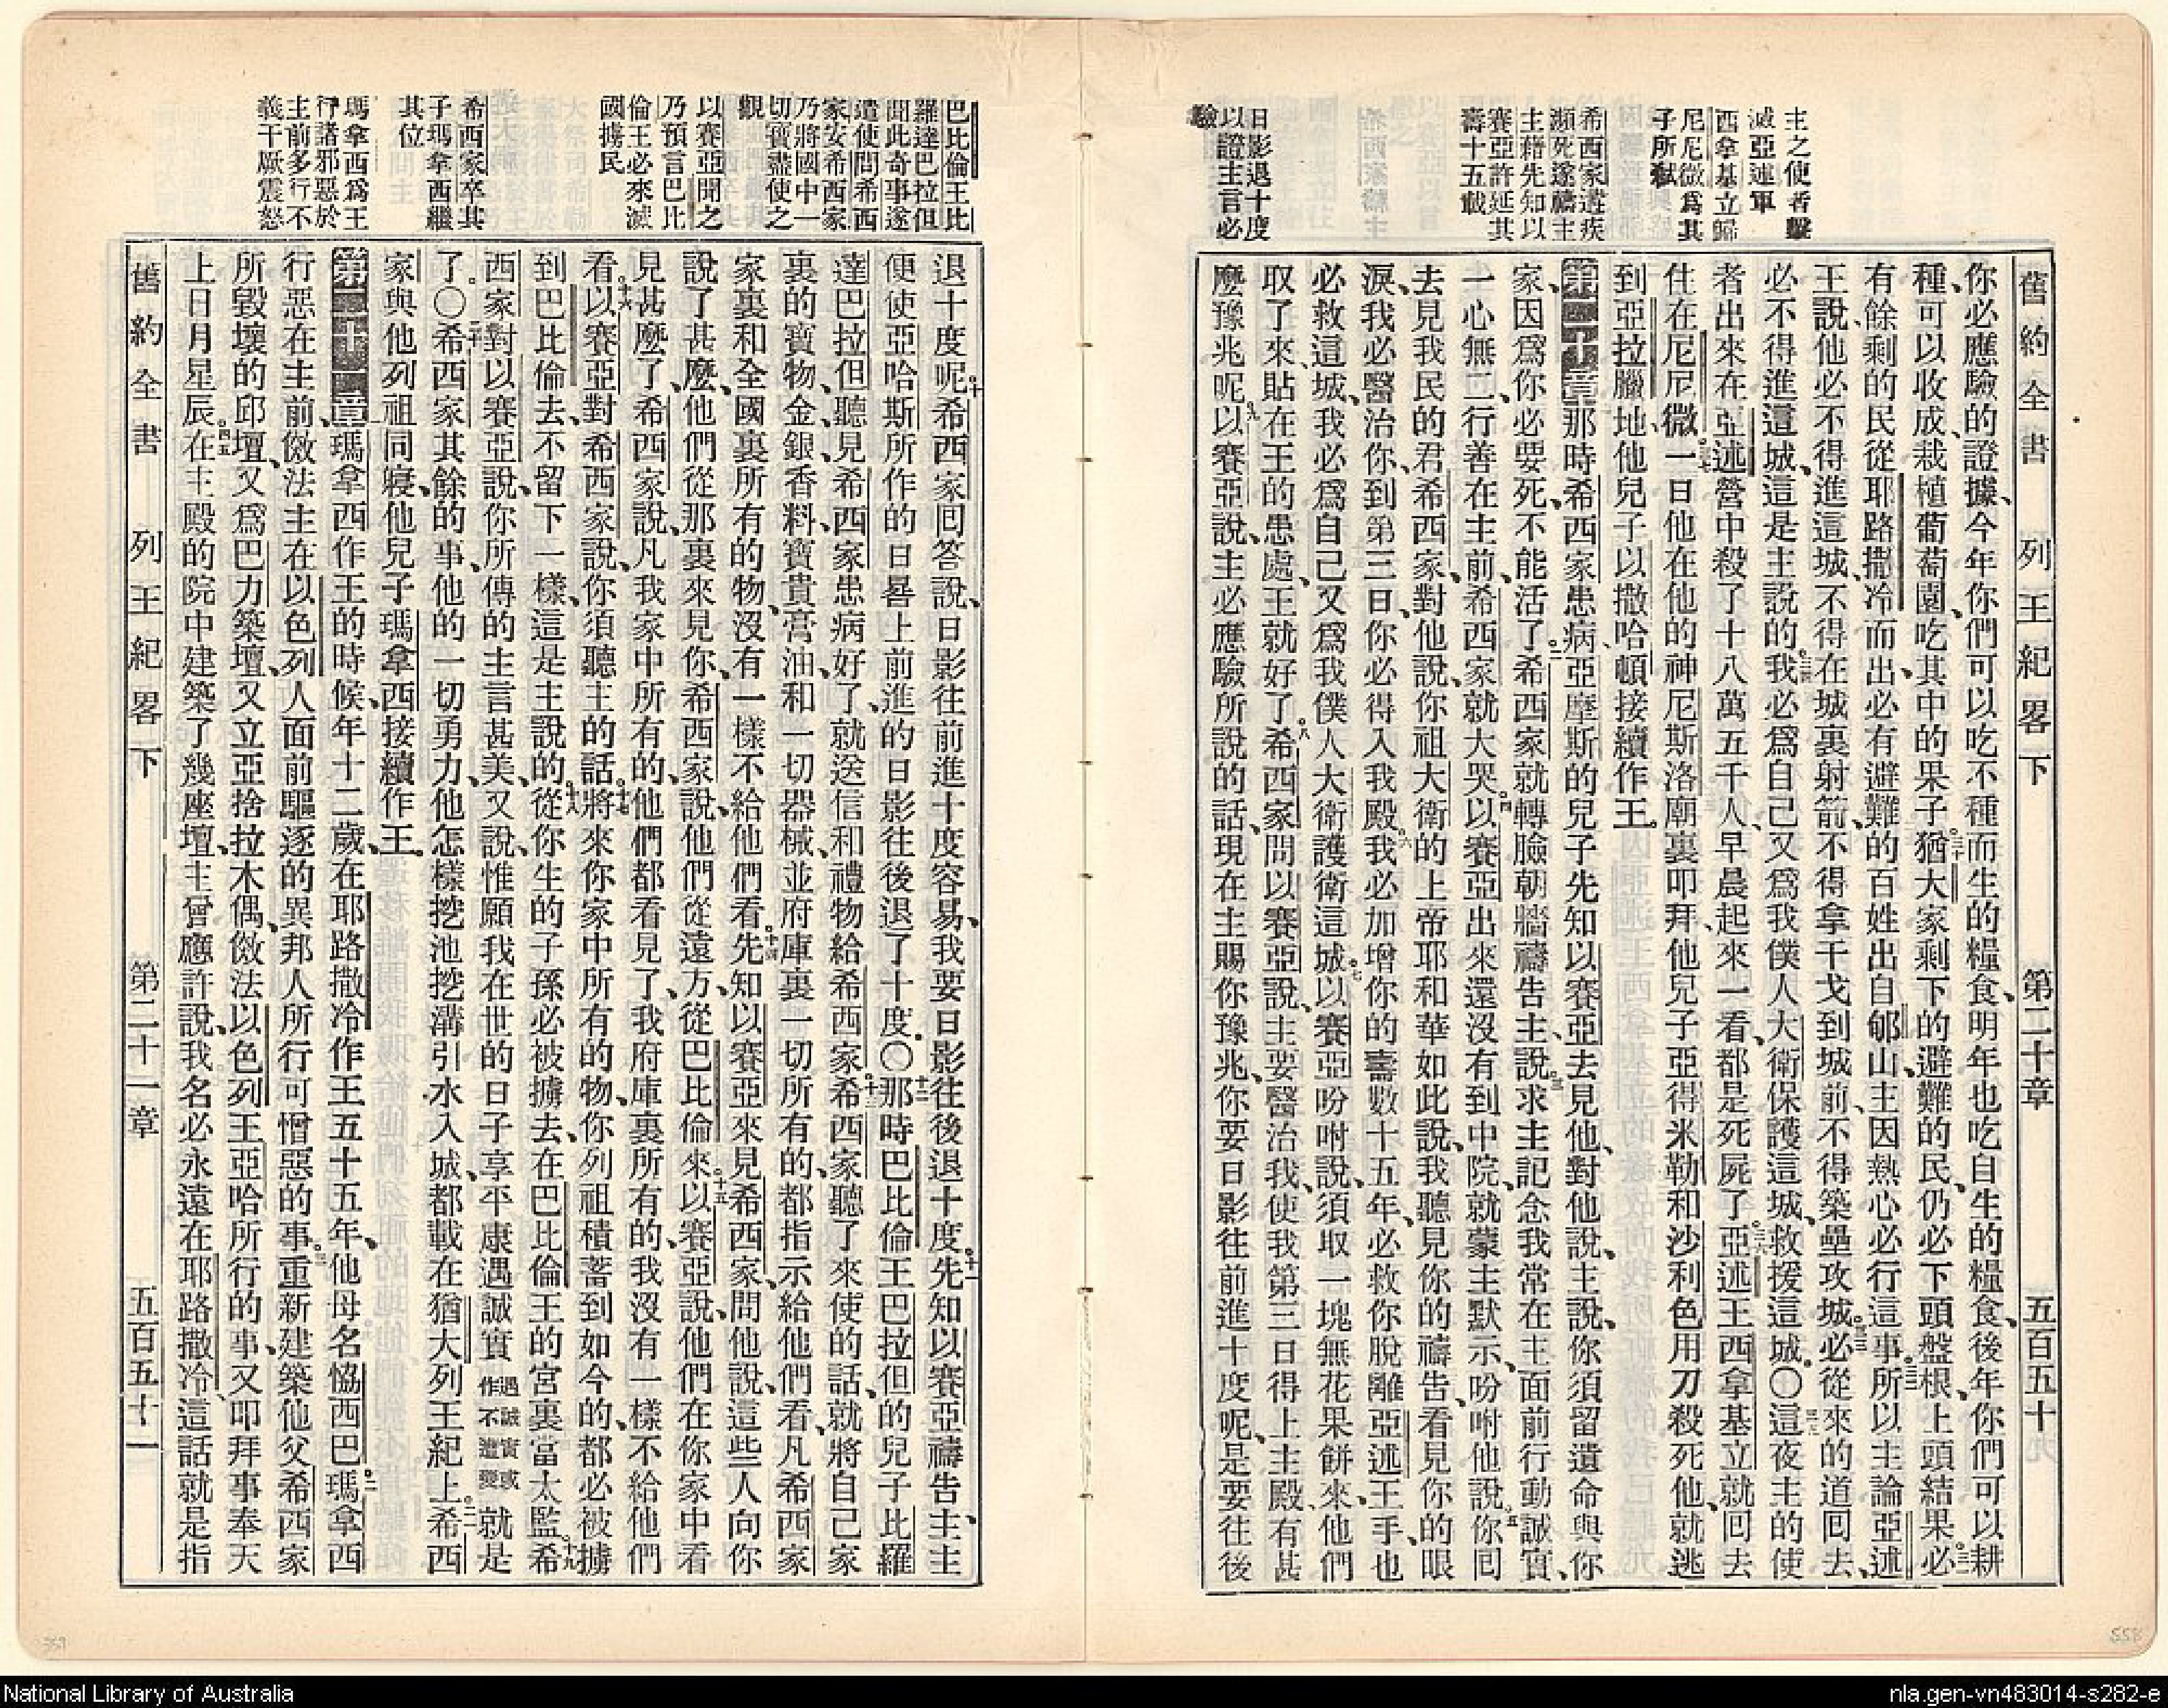 舊約全書 列王紀畧下 第二十章 五百五十
主之使者擊
滅亞述軍
西拿基立歸
尼尼微爲其
子所弑
希西家遘疾
瀕死遂禱主
主藉先知以
賽亞許延其
壽十五載
日影退十度
以證主言必
驗
你必應驗的證據、今年你們可以吃不種而生的糧食、明年也吃自生的糧食、後年你們可以耕
種、可以收成、栽植葡萄園、吃其中的果子。三十猶大家剩下的避難的民、仍必下頭盤根、上頭結果。三一必
有餘剩的民從耶路撒冷而出、必有避難的百姓出自郇山、主因熱心必行這事。三二所以主論亞述
王說、他必不得進這城、不得在城裏射箭、不得拿干戈到城前、不得築壘攻城。三三必從來的道回去、
必不得進這城、這是主說的。三四我必爲自己、又爲我僕人大衞保護這城、救援這城。〇三五這夜主的使
者出來、在亞述營中殺了十八萬五千人、早晨起來一看、都是死屍了。三六亞述王西拿基立就回去
住在尼尼微。三七一日他在他的神尼斯洛廟裏叩拜、他兒子亞得米勒和沙利色用刀殺死他、就逃
到亞拉臘地、他兒子以撒哈頓接續作王。
第二十章 那時希西家患病、亞摩斯的兒子先知以賽亞去見他、對他說、主說、你須留遺命與你
家、因爲你必要死、不能活了。二希西家就轉臉朝牆禱告主、說、三求主記念我常在主面前行動誠實、
一心無二、行善在主前、希西家就大哭。四以賽亞出來還沒有到中院、就蒙主默示、吩咐他說、五你回
去見我民的君希西家、對他說、你祖大衞的上帝耶和華如此說、我聽見你的禱告、看見你的眼
淚、我必醫治你、到第三日、你必得入我殿。六我必加增你的壽數十五年、必救你脫離亞述王手、也
必救這城、我必爲自己又爲我僕人大衞護衞這城。七以賽亞吩咐說、須取一塊無花果餅來、他們
取了來、貼在王的患處、王就好了。八希西家問以賽亞說、主要醫治我、使我第三日得上主殿、有甚
麼豫兆呢。九以賽亞說、主必應驗所說的話、現在主賜你豫兆、你要日影往前進十度呢、是要往後
巴比倫王比
羅達巴拉但
聞此奇事遂
遣使問希西
家安希西家
乃將國中一
切寶盡使之
觀
以賽亞聞之
乃預言巴比
倫王必來滅
國擄民
希西家卒其
子瑪拿西繼
其位
瑪拿西爲王
行諸邪惡於
主前多行不
義干厥震怒
退十度呢。十希西家回答說、日影往前進十度容易、我要日影往後退十度。十一先知以賽亞禱告主、主
便使亞哈斯所作的日晷上前進的日影、往後退了十度。〇十二那時巴比倫王巴拉但的兒子比羅
達巴拉但聽見希西家患病好了、就送信和禮物給希西家。十三希西家聽了來使的話、就將自己家
裏的寶物、金、銀、香料、寶貴膏油、和一切器械、並府庫裏一切所有的、都指示給他們看、凡希西家
家裏和全國裏所有的物、沒有一樣不給他們看。十四先知以賽亞來見希西家、問他說、這些人向你
說了甚麼、他們從那裏來見你、希西家說、他們從遠方、從巴比倫來。十五以賽亞說、他們在你家中看
見甚麼了、希西家說、凡我家中所有的、他們都看見了、我府庫裏所有的、我沒有一樣不給他們
看。十六以賽亞對希西家說、你須聽主的話。十七將來你家中所有的物、你列祖積蓄到如今的、都必被擄
到巴比倫去、不留下一樣、這是主說的。十八從你生的子孫必被擄去、在巴比倫王的宮裏當太監。十九希
西家對以賽亞說、你所傳的主言甚美、又說、惟願我在世的日子享平康、遇誠實 遇誠實或作不遭變 就是
了。〇二十希西家其餘的事、他的一切勇力、他怎樣挖池挖溝引水入城、都載在猶大列王紀上。二一希西
家與他列祖同寢、他兒子瑪拿西接續作王。
第二十一章 瑪拿西作王的時候、年十二歲、在耶路撒冷作王五十五年、他母名恊西巴。二瑪拿西
行惡在主前、傚法主在以色列人面前驅逐的異邦人所行可憎惡的事。三重新建築他父希西家
所毀壞的邱壇、又爲巴力築壇、又立亞捨拉木偶、傚法以色列王亞哈所行的事、又叩拜事奉天
上日月星辰。四五在主殿的院中建築了幾座壇、主曾應許說、我名必永遠在耶路撒冷、這話就是指
舊約全書 列王紀畧下 第二十一章 五百五十一
359
558
National Library of Australia
nla.gen-vn483014-s282-e